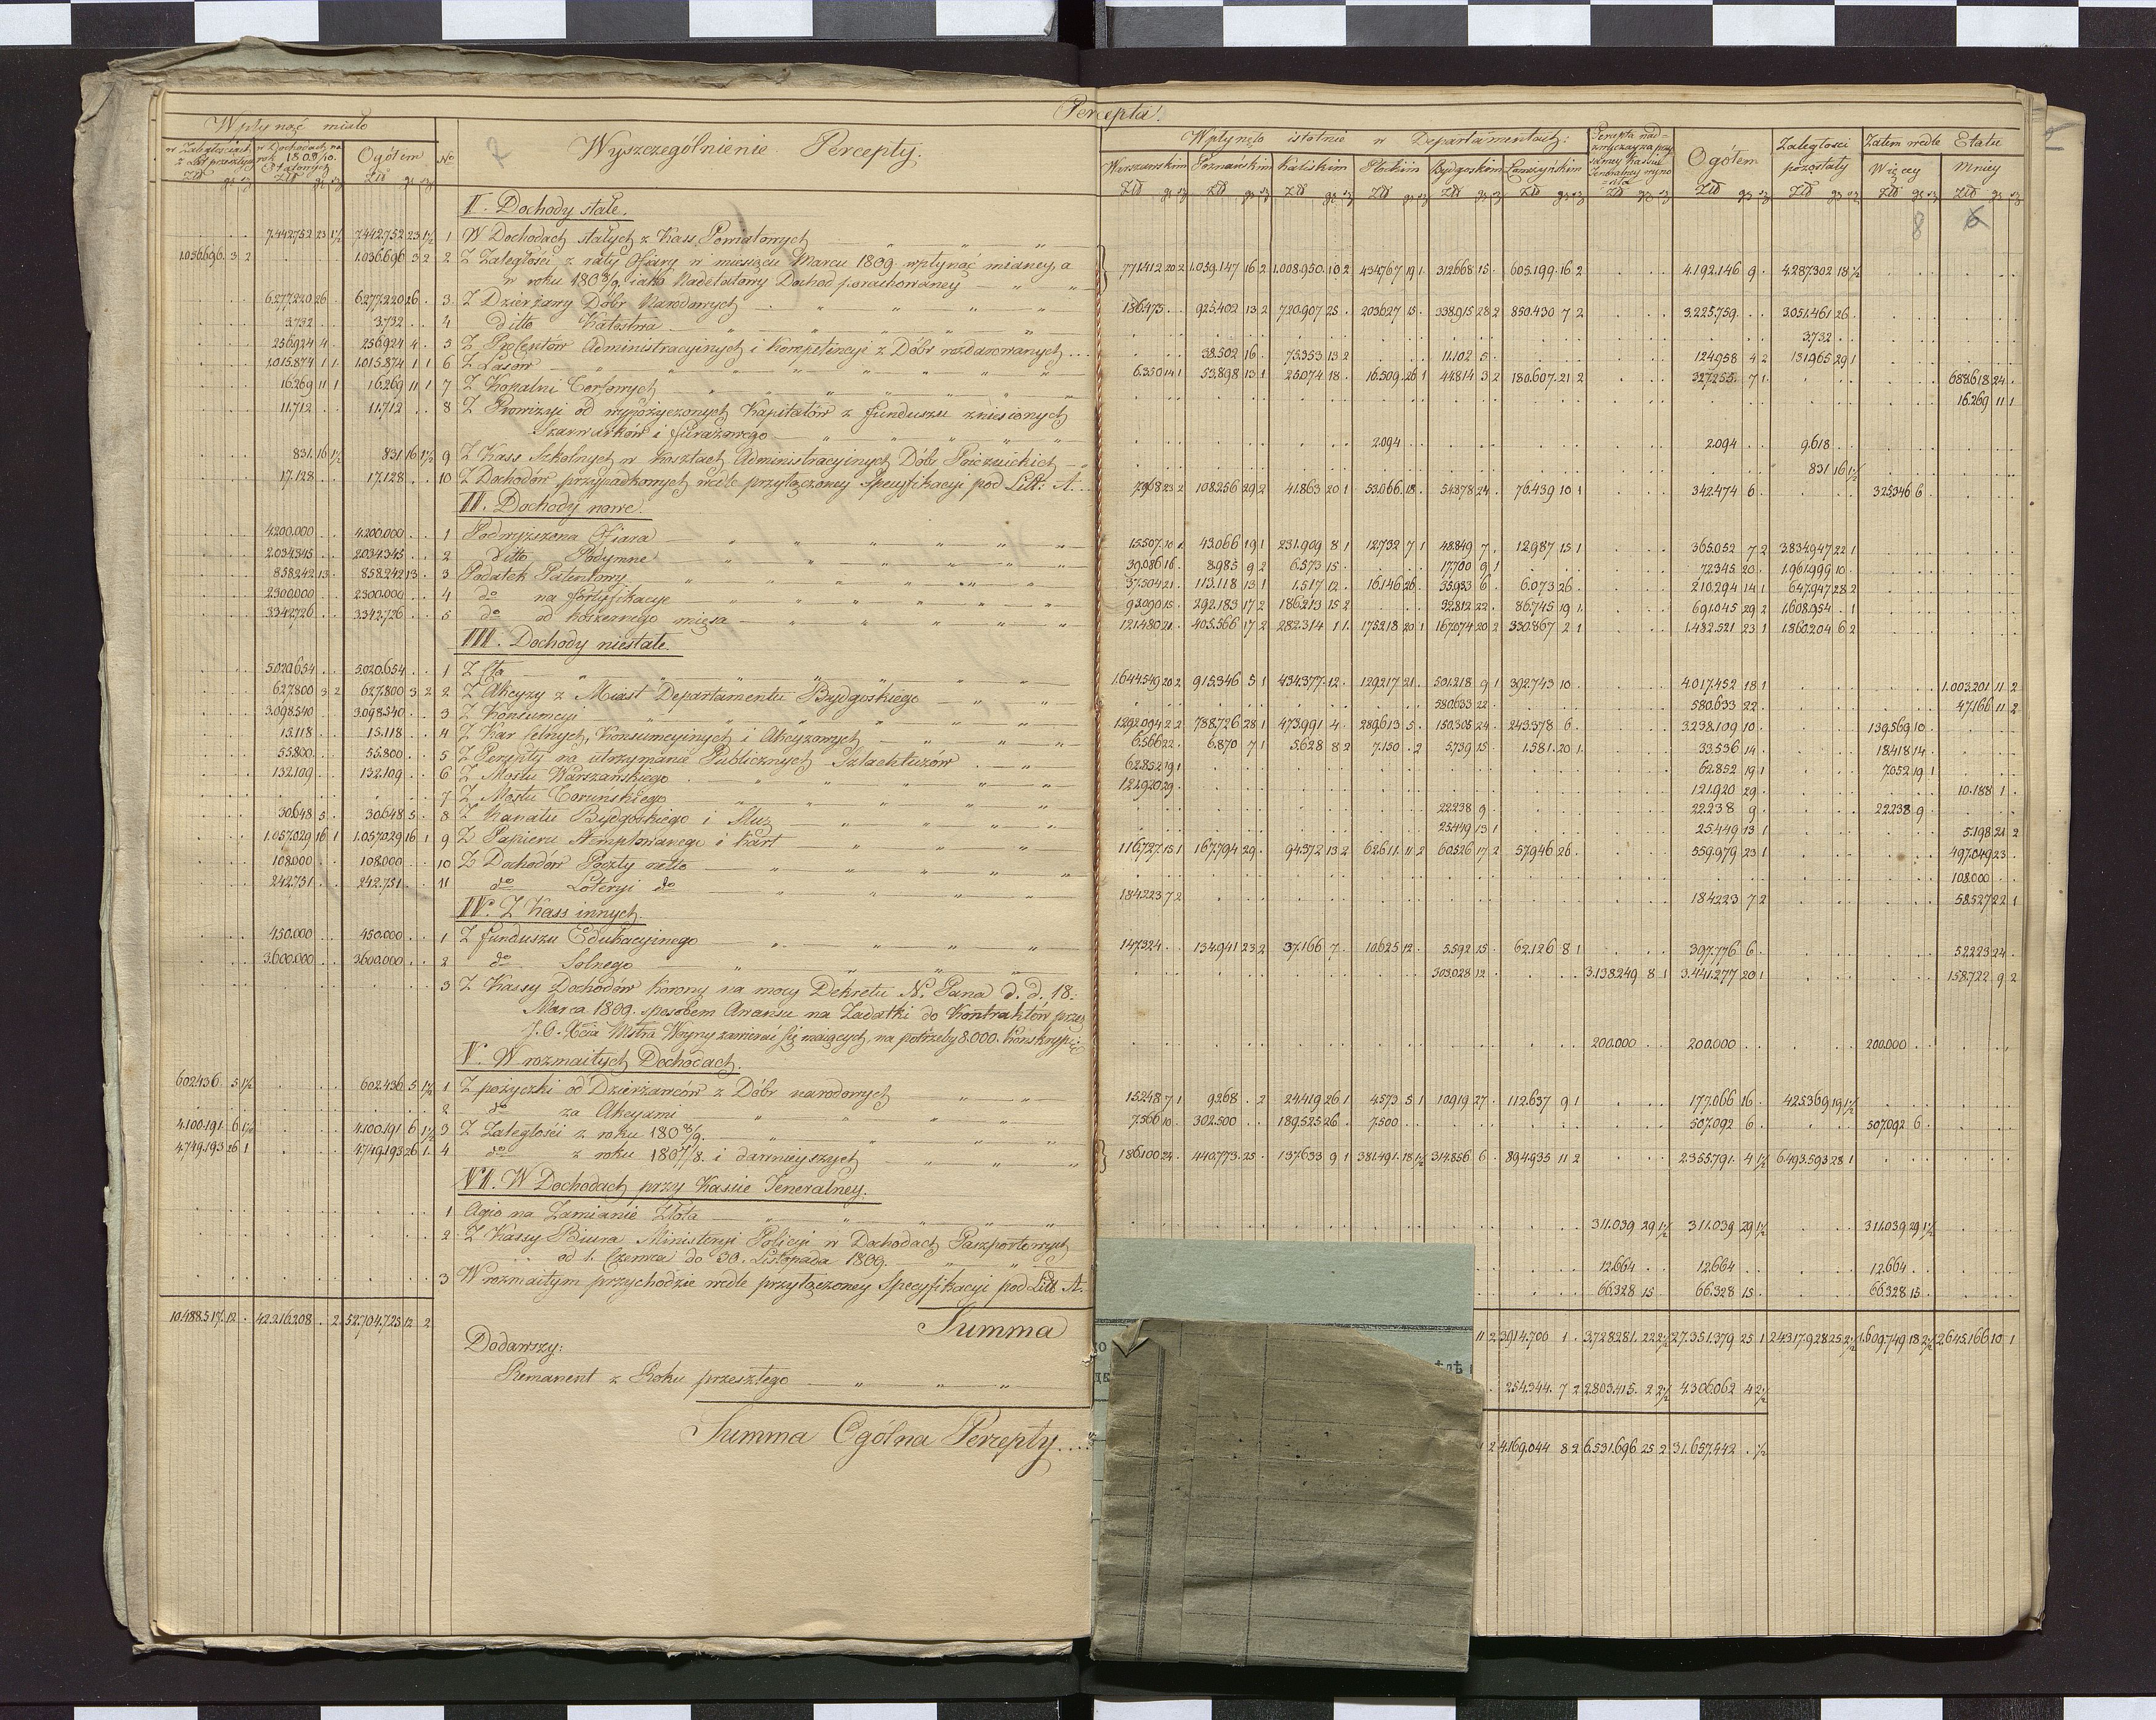 Percepta.
Wpłynąć miało
w Zaległościach z Lat przeszłych
w Dochodach na rok 1809/10. Etatowych
Ogółem
No
Wyszczególnienie Percepty.
Wpłynęło istotnie w Departamentach:
Warszawskim Poznańskim Kaliskim Płockim Bydgoskim Łomżyńskim
Ogółem
Zaległości pozostały
Zatem wedle Etatu
Więcey Mniey
8 6
I. Dochody stałe.
7.442.752 23 1½ 7.442.752 23 1½ 1 W Dochodach stałych z Kass Powiatowych
1.036.696. 3 2 1.036.696 3 2 2 Z Zaległości z raty Ofiary w miesiącu Marcu 1809 wpłynąć mianey, a
w roku 1808/9 jako Nadetatowy Dochod porachowaney
771.412 20 2 1.059.147 16 2 1.008.950. 10 2 434.767 19 1 312.668 15 605.199. 16 2 4.192.146 9 4.287.302 18 ½
6.277.220 26 6.277.220 26 3 Z Dzierżawy Dóbr Narodowych
186.475 925.402 13 2 720.907 25 203.627 15 338.915 28 2 850.430 7 2 3.225.759 3.051.461 26
3.732 3.732 4 Ditto Kalestwa
3.732
256.924 4 256.924 4 5 Z Prolestów Administracyinych i Kompetencyi z Dóbr rozdarowanych
38.502 16 75.353 13 2 11.102 5 124.958 4 2 131.965 29 1
1.015.874 1 1 1.015.874 1 1 6 Z Lasów
6.350 14 1 53.898 13 1 25.074 18 16.509 26 1 44.814 3 2 180.607. 21 2 327.255. 7 1 688.618 24
16.269 11 1 16.269 11 1 7 Z Kopalni Torfowych
16.269 11 1
11.712 11.712 8 Z Prowizyi od wypożyczonych Kapitałów z funduszu zniesionych
Szarwarków i furażowego
2.094 2.094 9.618
831. 16 1½ 831 16 1½ 9 Z Kass Szkolnych w Kosztach Administracyinych Dóbr Poiezuickich
831 16 1½
17.128 17.128 10 Z Dochodów przypadkowych wedle przyłączoney Specyfikacyi pod Litt: A.
7.968 23 2 108.256 29 2 41.863 20 1 53.066 18 54.878 24 76.439 10 1 342.474 6 325.346 6
II. Dochody nowe.
4.200.000 4.200.000 1 Podwyższona Ofiara
15.507. 10 43.066 19 1 231.909 8 1 12.732 7 1 48.849 7 12.987 15 1 365.052 7 2 3.834.947 22 1
2.034.345 2.034.345 2 Ditto Podymne
39.086 16 8.985 9 2 6.573 15 17.700 9 1 72.345 20 1.961.999 10
858.242 13 858.242 13 3 Podatek Patentowy
37.304 21 113.118 13 1 1.517 12 16.146 26 35.933 6 6.073 26 210.294 14 1 647.947 28 2
2.300.000 2.300.000 4 do na fortyfikacye
93.090 15 292.183 17 2 186.213 15 2 32.812 22 86.745 19 1 691.045 29 2 1.608.954 1
3.342.726 3.342.726 5 do od koszernego mięsa
121.480 21 405.566 17 2 282.314 11 175.218 20 1 167.074 20 2 330.867 2 1 1.482.521 23 1 1.860.204 6 2
III. Dochody niestałe.
5.020.654 5.020.654 1 Z Cła
1.644.549 20 2 915.346 5 1 434.377 12 129.217 21 501.218 9 1 392.743 10 4.017.452 18 1 1.003.201 11 2
627.800 3 2 627.800 3 2 2 Z Akcyzy z Miast Departamentu Bydgoskiego
580.633 22 580.633 22 47.166 11 2
3.098.540 3.098.540 3 Z Konsumcyi
1.292.094 2 2 788.726 28 1 473.991 4 289.613 5 150.305 24 243.378 6 3.238.109 10 139.569 10
15.118 15.118 4 Z Kar celnych, Konsumcyinych i Akcyzowych
6.566 22 6.870 7 1 5.628 8 2 7.150 2 5.739 15 1.581. 20 1 33.536 14 18.418 14
55.800 55.800 5 Z Percepty na utrzymanie Publicznych Szlachtuzów
62.852 19 1 62.852 19 1 7.052 19 1
132.109 132.109 6 Z Mostu Warszawskiego
121.920 29 121.920 29 10.188 1
7 Z Mostu Toruńskiego
22.238 9 22.238 9 22.238 9
30.648 5 30.648 5 8 Z Kanału Bydgoskiego i Śluz
25.449 13 1 25.449 13 1 5.198 21 2
1.057.029 16 1 1.057.029 16 1 9 Z Papieru Stemplowanego i kart
116.727 15 1 167.794 29 94.372 13 2 62.611. 11 2 60.526 17 2 57.946 26 559.979 23 1 497.049 23
108.000 108.000 10 Z Dochodów Poczty netto
108.000
242.751 242.751 11 do Loteryi do
184.223 7 2 184.223 7 2 58.527 22 1
IV. Z Kass innych.
450.000 450.000 1 Z funduszu Edukacyinego
147.324 134.941 23 2 37.166 7 10.625 12 5.592 15 62.126 8 1 397.776 6 52.223 24
3.600.000 3.600.000 2 do Solnego
303.028 12 3.138.249 8 1 3.441.277 20 1 158.722 9 2
3 Z Kassy Dochodów Korony na mocy Dekretu N. Pana d. d. 18:
Marca 1809. sposobem Awansu na Zadatki do Kontraktów przez
J. O. Xcia Mstra Woyny zawierać się maiących, na potrzeby 8.000. Konskrypc:
200.000 200.000 200.000
V. W rozmaitych Dochodach.
602.436 5 1½ 602.436 5 1½ 1 Z pożyczki od Dzierżawców z Dóbr narodowych
15.248 7 1 9.268 2 24.419 26 1 4.573 5 1 10.919 27 112.637 9 1 177.066 16 425.369 19 1½
2 do za Akcyami
7.566 10 302.500 189.525 26 7.500 507.092 6 507.092 6
4.100.191 6 1½ 4.100.191 6 1½ 3 Z Zaległości z roku 1808/9.
4.749.193 26 1 4.749.193 26 1 4 do z roku 1807/8. i dawnieyszych
186.100 24 440.773 25 137.633 9 1 381.491. 18 1½ 314.856 6 894.935 11 2 2.355.791. 4 1½ 6.493.593 28 1
VI. W Dochodach przy Kassie Jeneralney.
1 Agio na Zamianie Złota
311.039 29 1½ 311.039 29 1½ 311.039 29 1½
2 Z Kassy Biura Ministeryi Policyi w Dochodach Paszportowych
od 1. Czerwca do 30. Listopada 1809.
12.664 12.664 12.664
3 W rozmaitym przychodzie wedle przyłączoney Specyfikacyi pod Litt. A.
66.328 15 66.328 15 66.328 15
10.488.517. 12 42.216.208 2 52.704.725 12 2 Summa
11 2 3.914.700 1 3.728.281. 22 2½ 27.351.379 25 1 24.317.928 25 2½ 1.609.749 18 2½ 2.645.166 10 1
Dodawszy:
Remanent z Roku przeszłego
254.344. 7 2 2.803.415. 2 2½ 4.306.062 4 2½
Summa Ogólna Percepty
2 4.169.044 8 2 6.531.696 25 2 31.657.442 ½